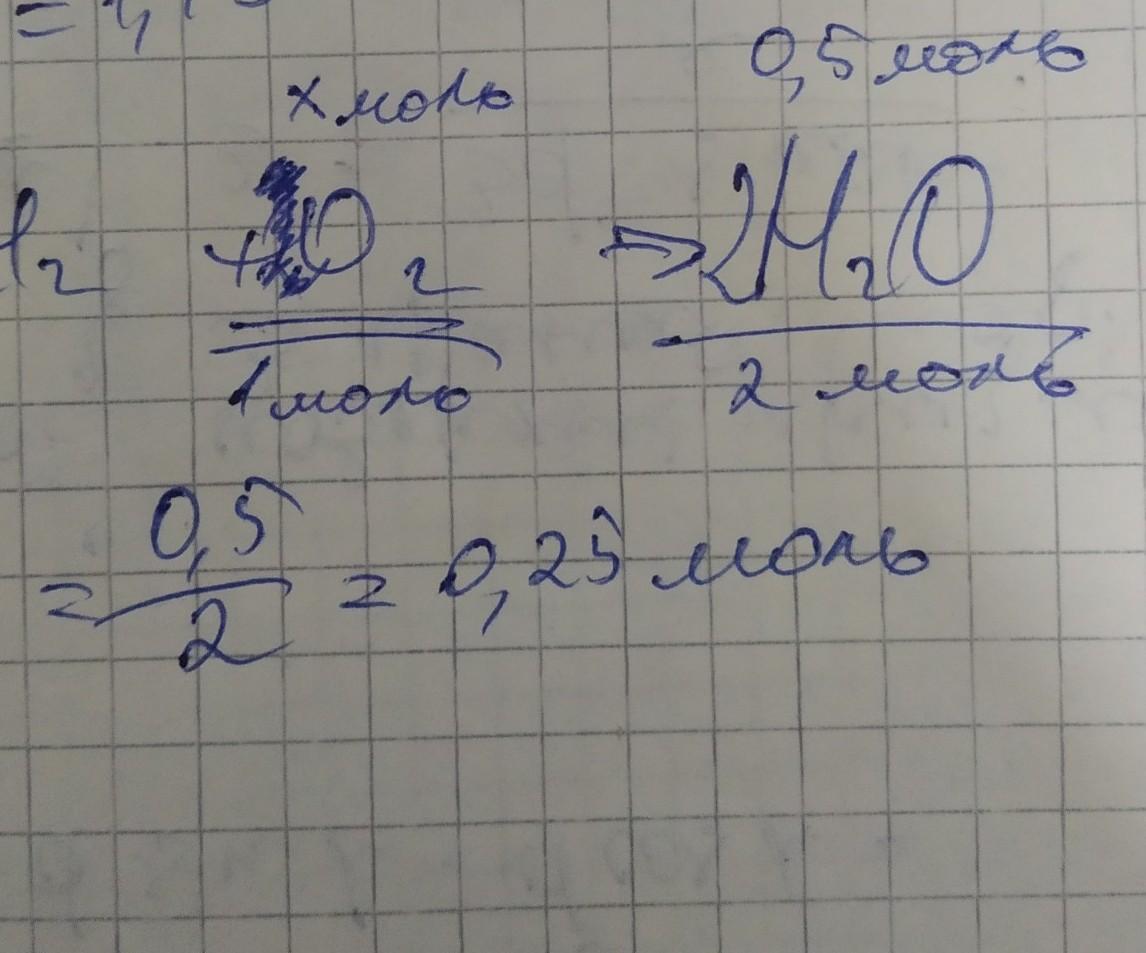 x моль 0,5 моль
+O₂ ⇒ 2H₂O
1 моль 2 моль
= 0,5/2 = 0,25 моль